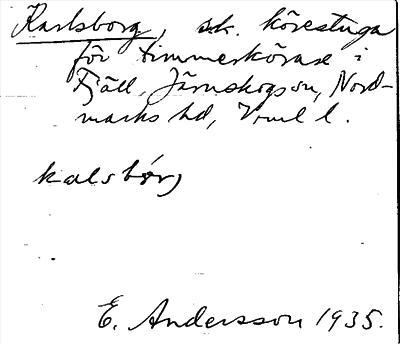 Karlsborg, sk. körestuga
för timmerkörare i
Fjäll, Järnskogs sn, Nord-
marks hd, Vrml l.
kalsbórj
E. Andersson 1935.